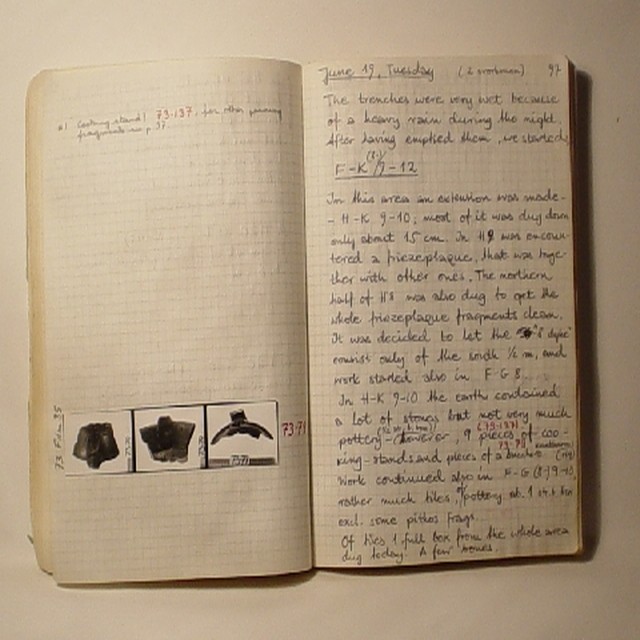 a! Cooking stand! 73-137, for other joining
fragments see p. 97.
73 Film 35
73-71
June 19, Tuesday (2 workmen) 97
The trenches were very wet because
of a heavy rain during the night.
After having emptied them, we started
F-K (8-)/9-12
In this area an extension was made-
- H-K 9-10; most of it was dug down
only about 15 cm. In H8 was encoun-
tered a friezeplaque, that was toge-
ther with other ones. The northern
half of H8 was also dug to get the
whole friezeplaque fragments clean.
It was decided to let the "8 dyke"
consist only of the south 1/2 m, and
work started also in F-G 8.
In H-K 9-10 the earth contained
a lot of stones but not very much
pottery - however, 9 pieces of coo-
(73-137)
king-stands and pieces of a
73-71
Work continued also in F-G (8-)9-10,
rather much tiles, pottery ab. 1 st. b. box
excl. some pithos frags.
Of tiles 1 full box from the whole area
dug today. A few bones.